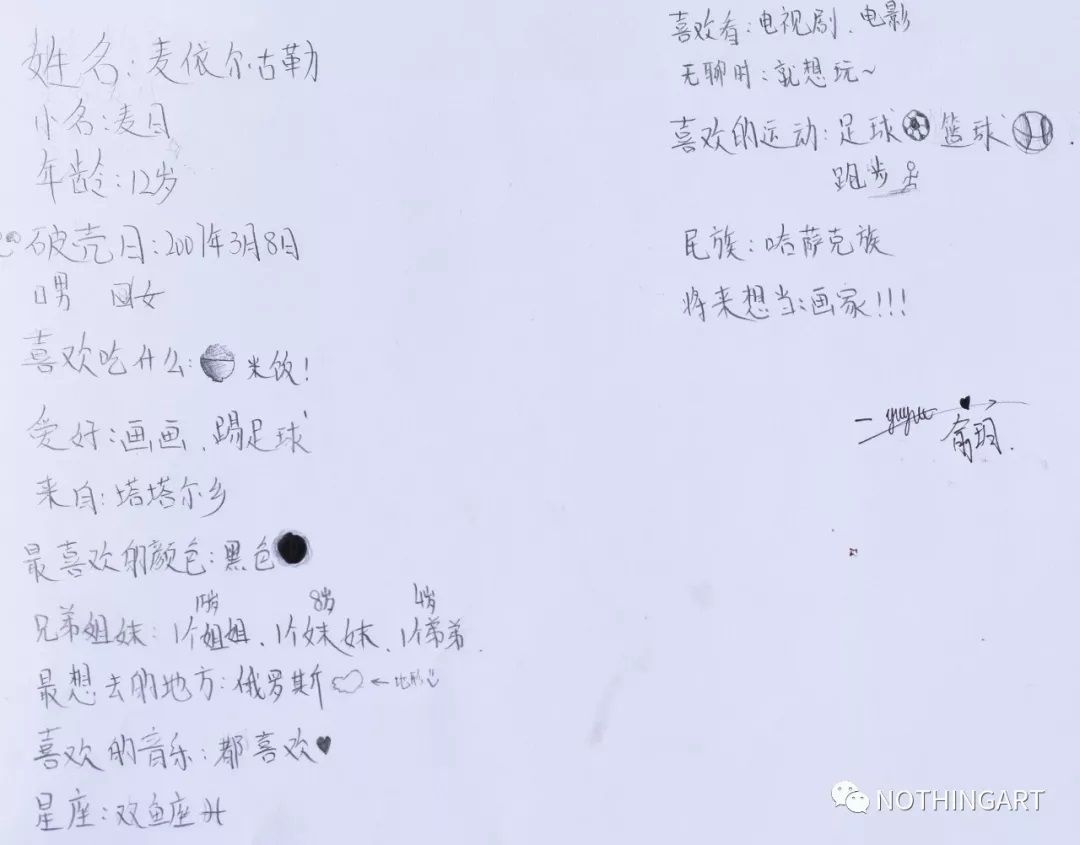 姓名:麦依尔古勒
小名:麦日
年龄:12岁
破壳日:2007年3月8日
口男 口女
喜欢吃什么: 米饭!
爱好:画画、踢足球
来自:塔塔尔乡
最喜欢的颜色:黑色
17岁 8岁 4岁
兄弟姐妹:1个姐姐、1个妹妹、1个弟弟.
最想去的地方:俄罗斯 ←地形
喜欢的音乐:都喜欢♥
星座:双鱼座♓
喜欢看:电视剧、电影
无聊时:就想玩~
喜欢的运动:足球 篮球 .
跑步
民族:哈萨克族
将来想当:画家!!!
俞玥.
NOTHINGART